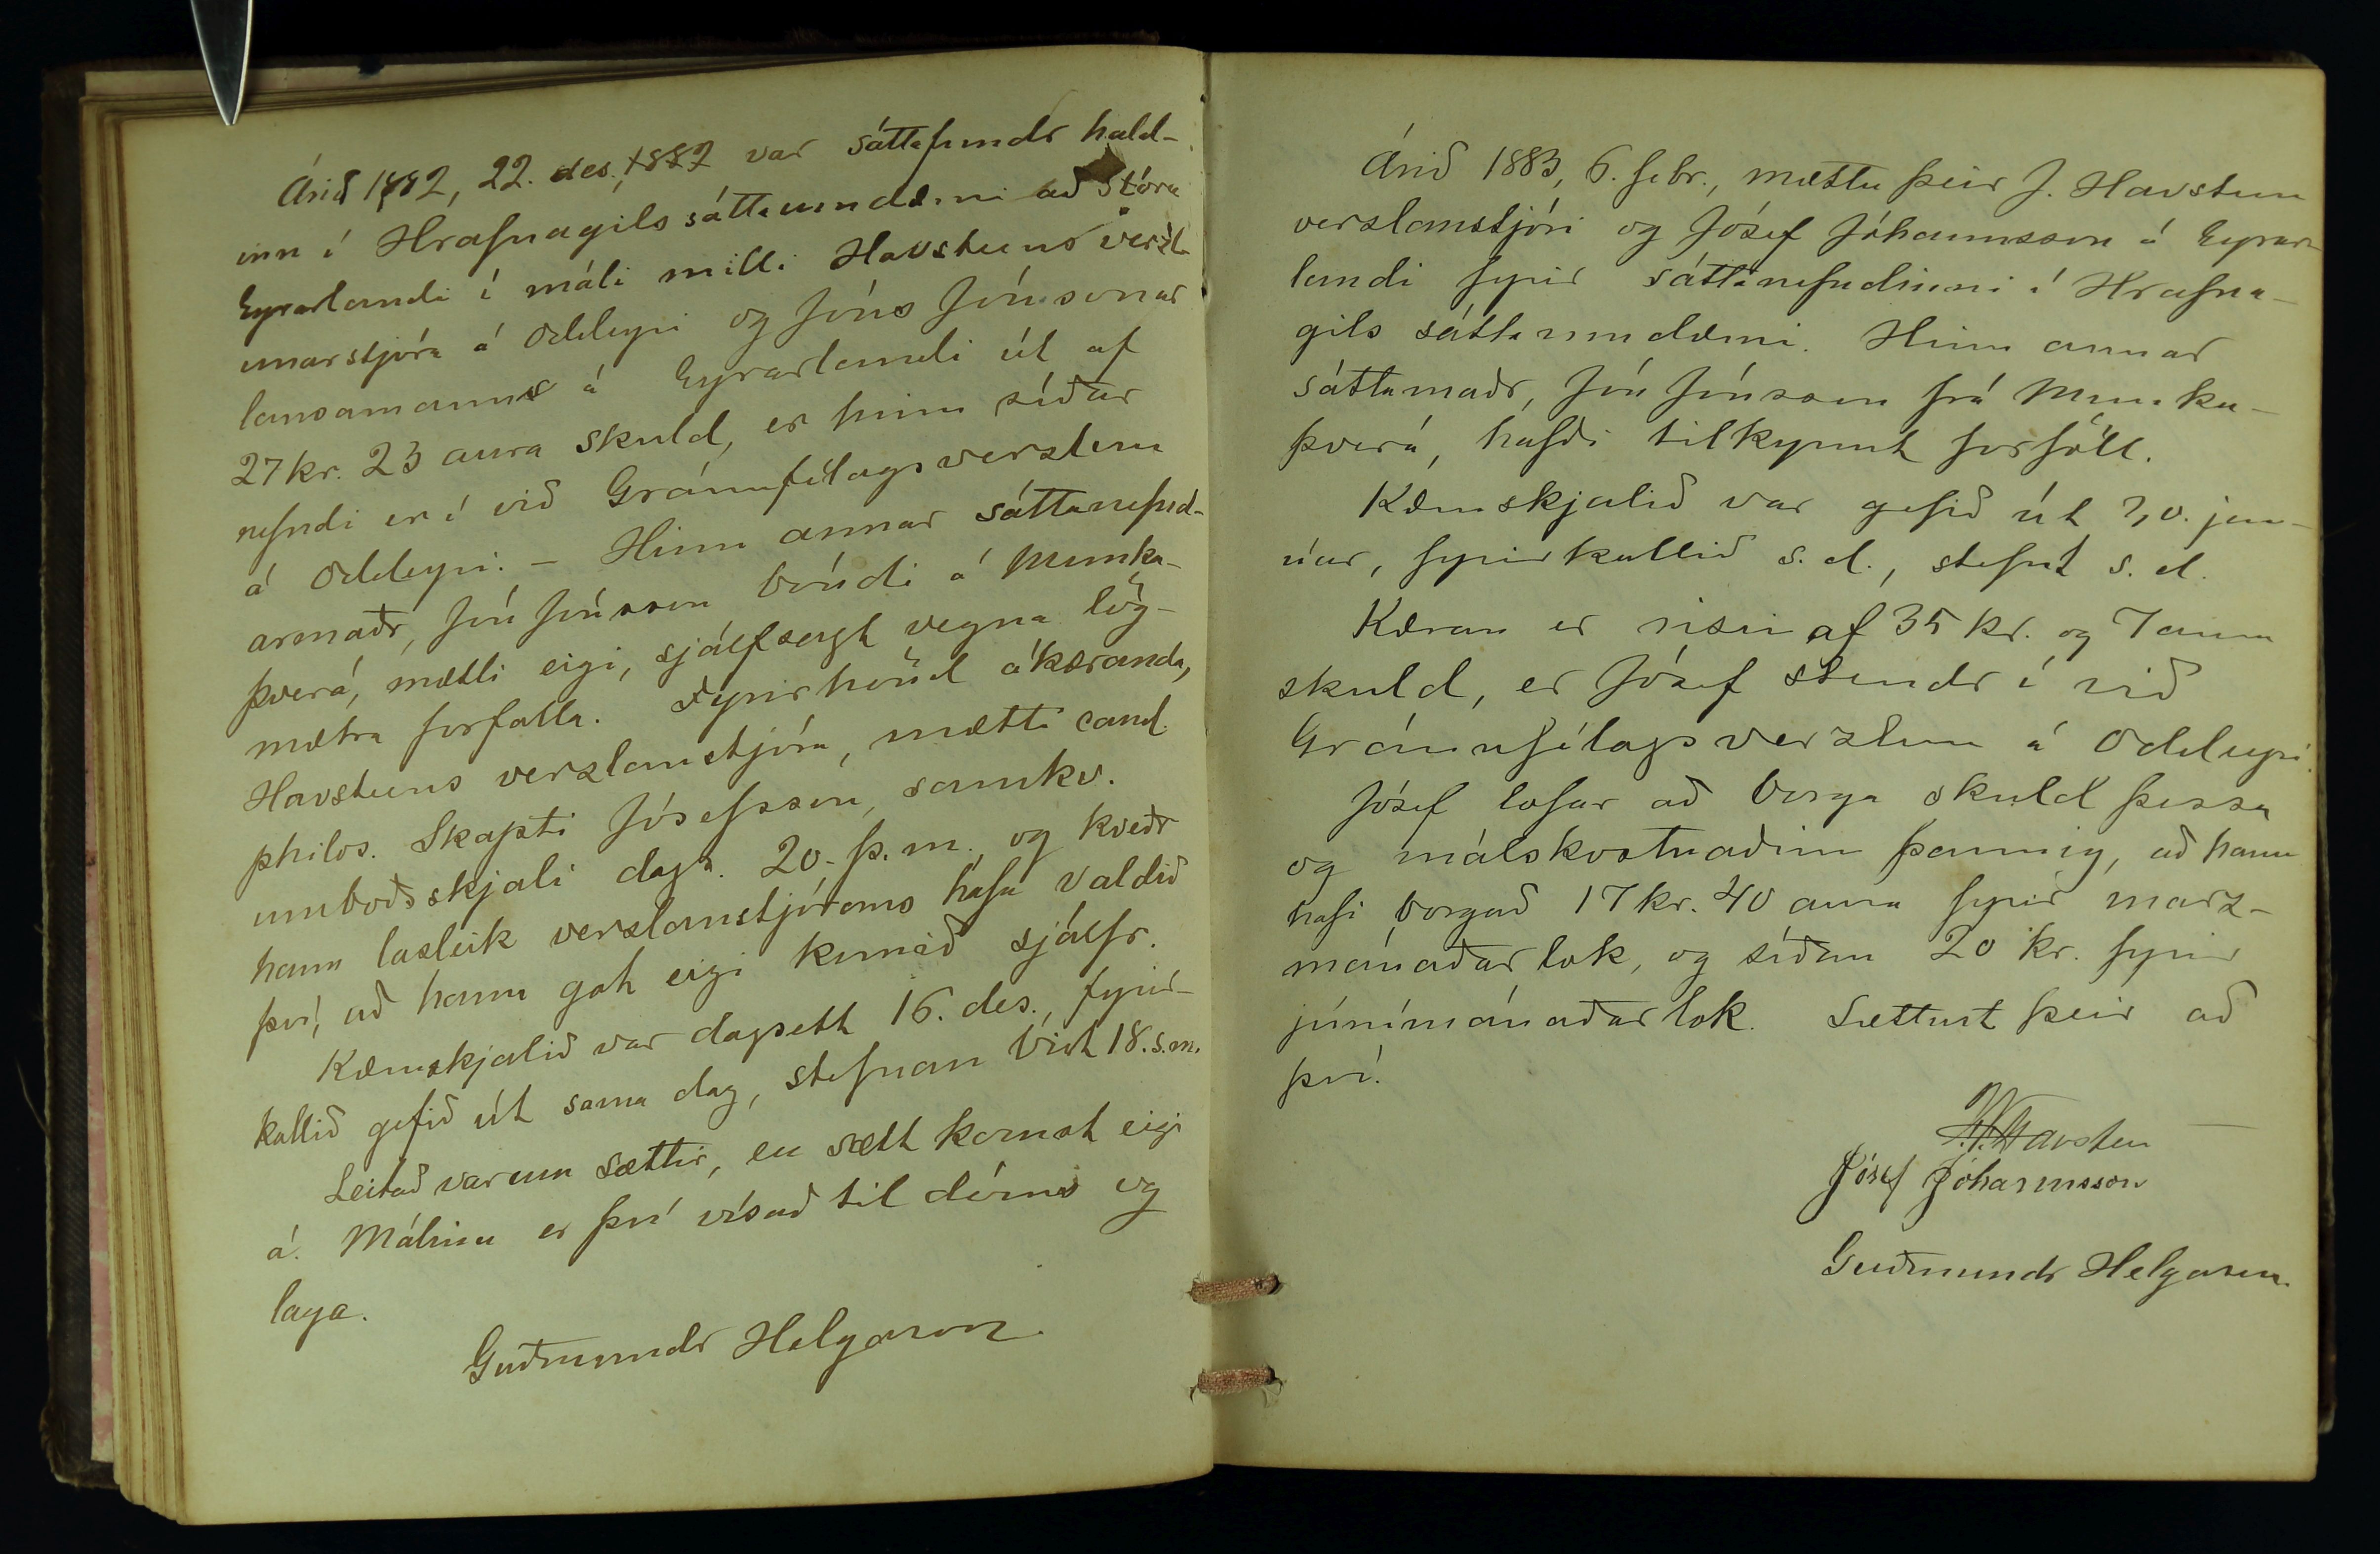 Árið 1882, 22. des., 1882 var sáttafundr hald-
inn í Hrafnagils sáttaumdæmi að Stóra
Eyrarlandi í máli milli Havsteens verzl-
unarstjóra á Oddeyri og Jóns Jónssonar
lausamanns á Eyrarlandi út af
27 kr. 23 aura skuld, er hinn síðar
nefndi er í við Gránufélagsverzlun
á Oddeyri. – Hinn annar sáttanefnd-
armaðr, Jón Jónsson bóndi á Munka-
þverá, mætti eigi, sjálfsagt vegna lög-
mætra forfalla. Fyrir hönd ákæranda,
Havsteens verzlanstjóra, mætti cand.
philos. Skapti Jósefsson, samkv.
umboðsskjali dags. 20. þ. m., og kveðr
hann lasleik verzlanstjórans hafa valdið
því, að hann gat eigi komið sjálfr.
Kæruskjalið var dagsett 16. des., fyrir-
kallið gefið út sama dag, stefnan birt 18. s.m.
Leitað var um sættir, en sætt komst eigi
á. Málinu er því vísað til dóms og
laga.
Guðmundr Helgason.
Árið 1883, 6. febr., mættu þeir J. Havsteen
verzlanstjóri og Jósef Jóhannsson á Eyrar-
landi fyrir sáttanefndinni í Hrafna-
gils sáttaumdæmi. Hinn annar
sáttamaðr, Jón Jónsson frá Munka-
þverá, hafði tilkynnt forföll.
Kæruskjalið var gefið út 30. jan-
úar, fyrirkallið s. d., stefnt s. d.
Kæran er risin af 35 kr. og 7 aura
skuld, er Jósef stendr í við
Gránufélagsverzlun á Oddeyri.
Jósef lofar að borga skuld þessa
og málskostnaðinn þannig, að hann
hafi borgað 17 kr. 40 aura fyrir marz-
mánaðarlok, og síðan 20 kr. fyrir
júnímánaðarlok. Sættust þeir að
því.
J. V. Havsteen
Jósef Jóhannsson
Guðmundr Helgason.